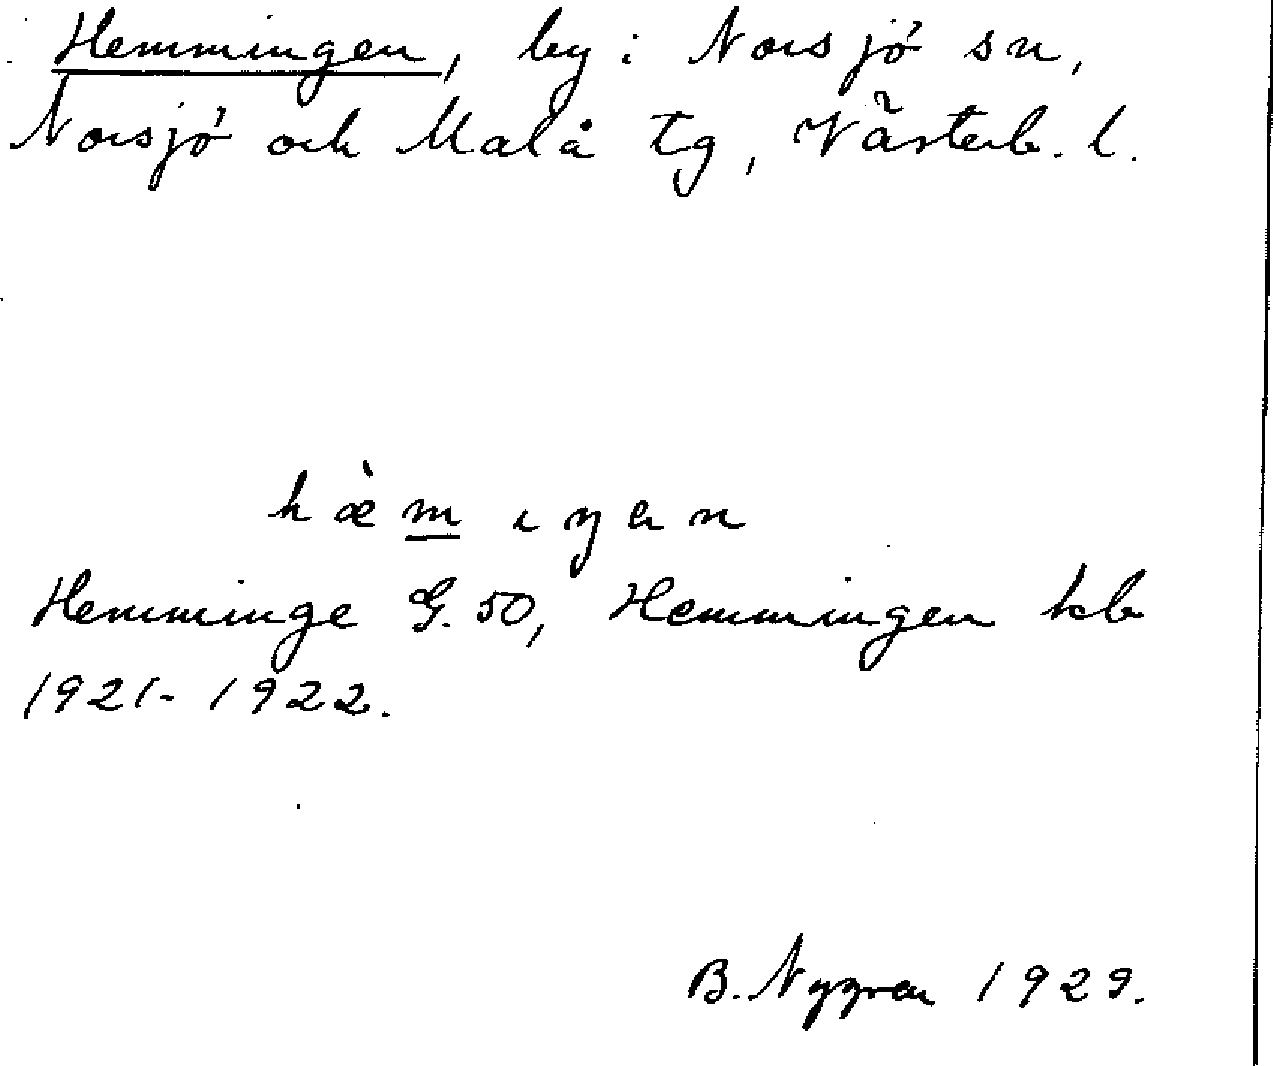 Hemmingen, by i Norsjö sn,
Norsjö och Malå tg, Västerb. l.
hæ̀m̲ıŋən
Hemminge G. 50, Hemmingen kb
1921-1922.
B. Nygren 1929.